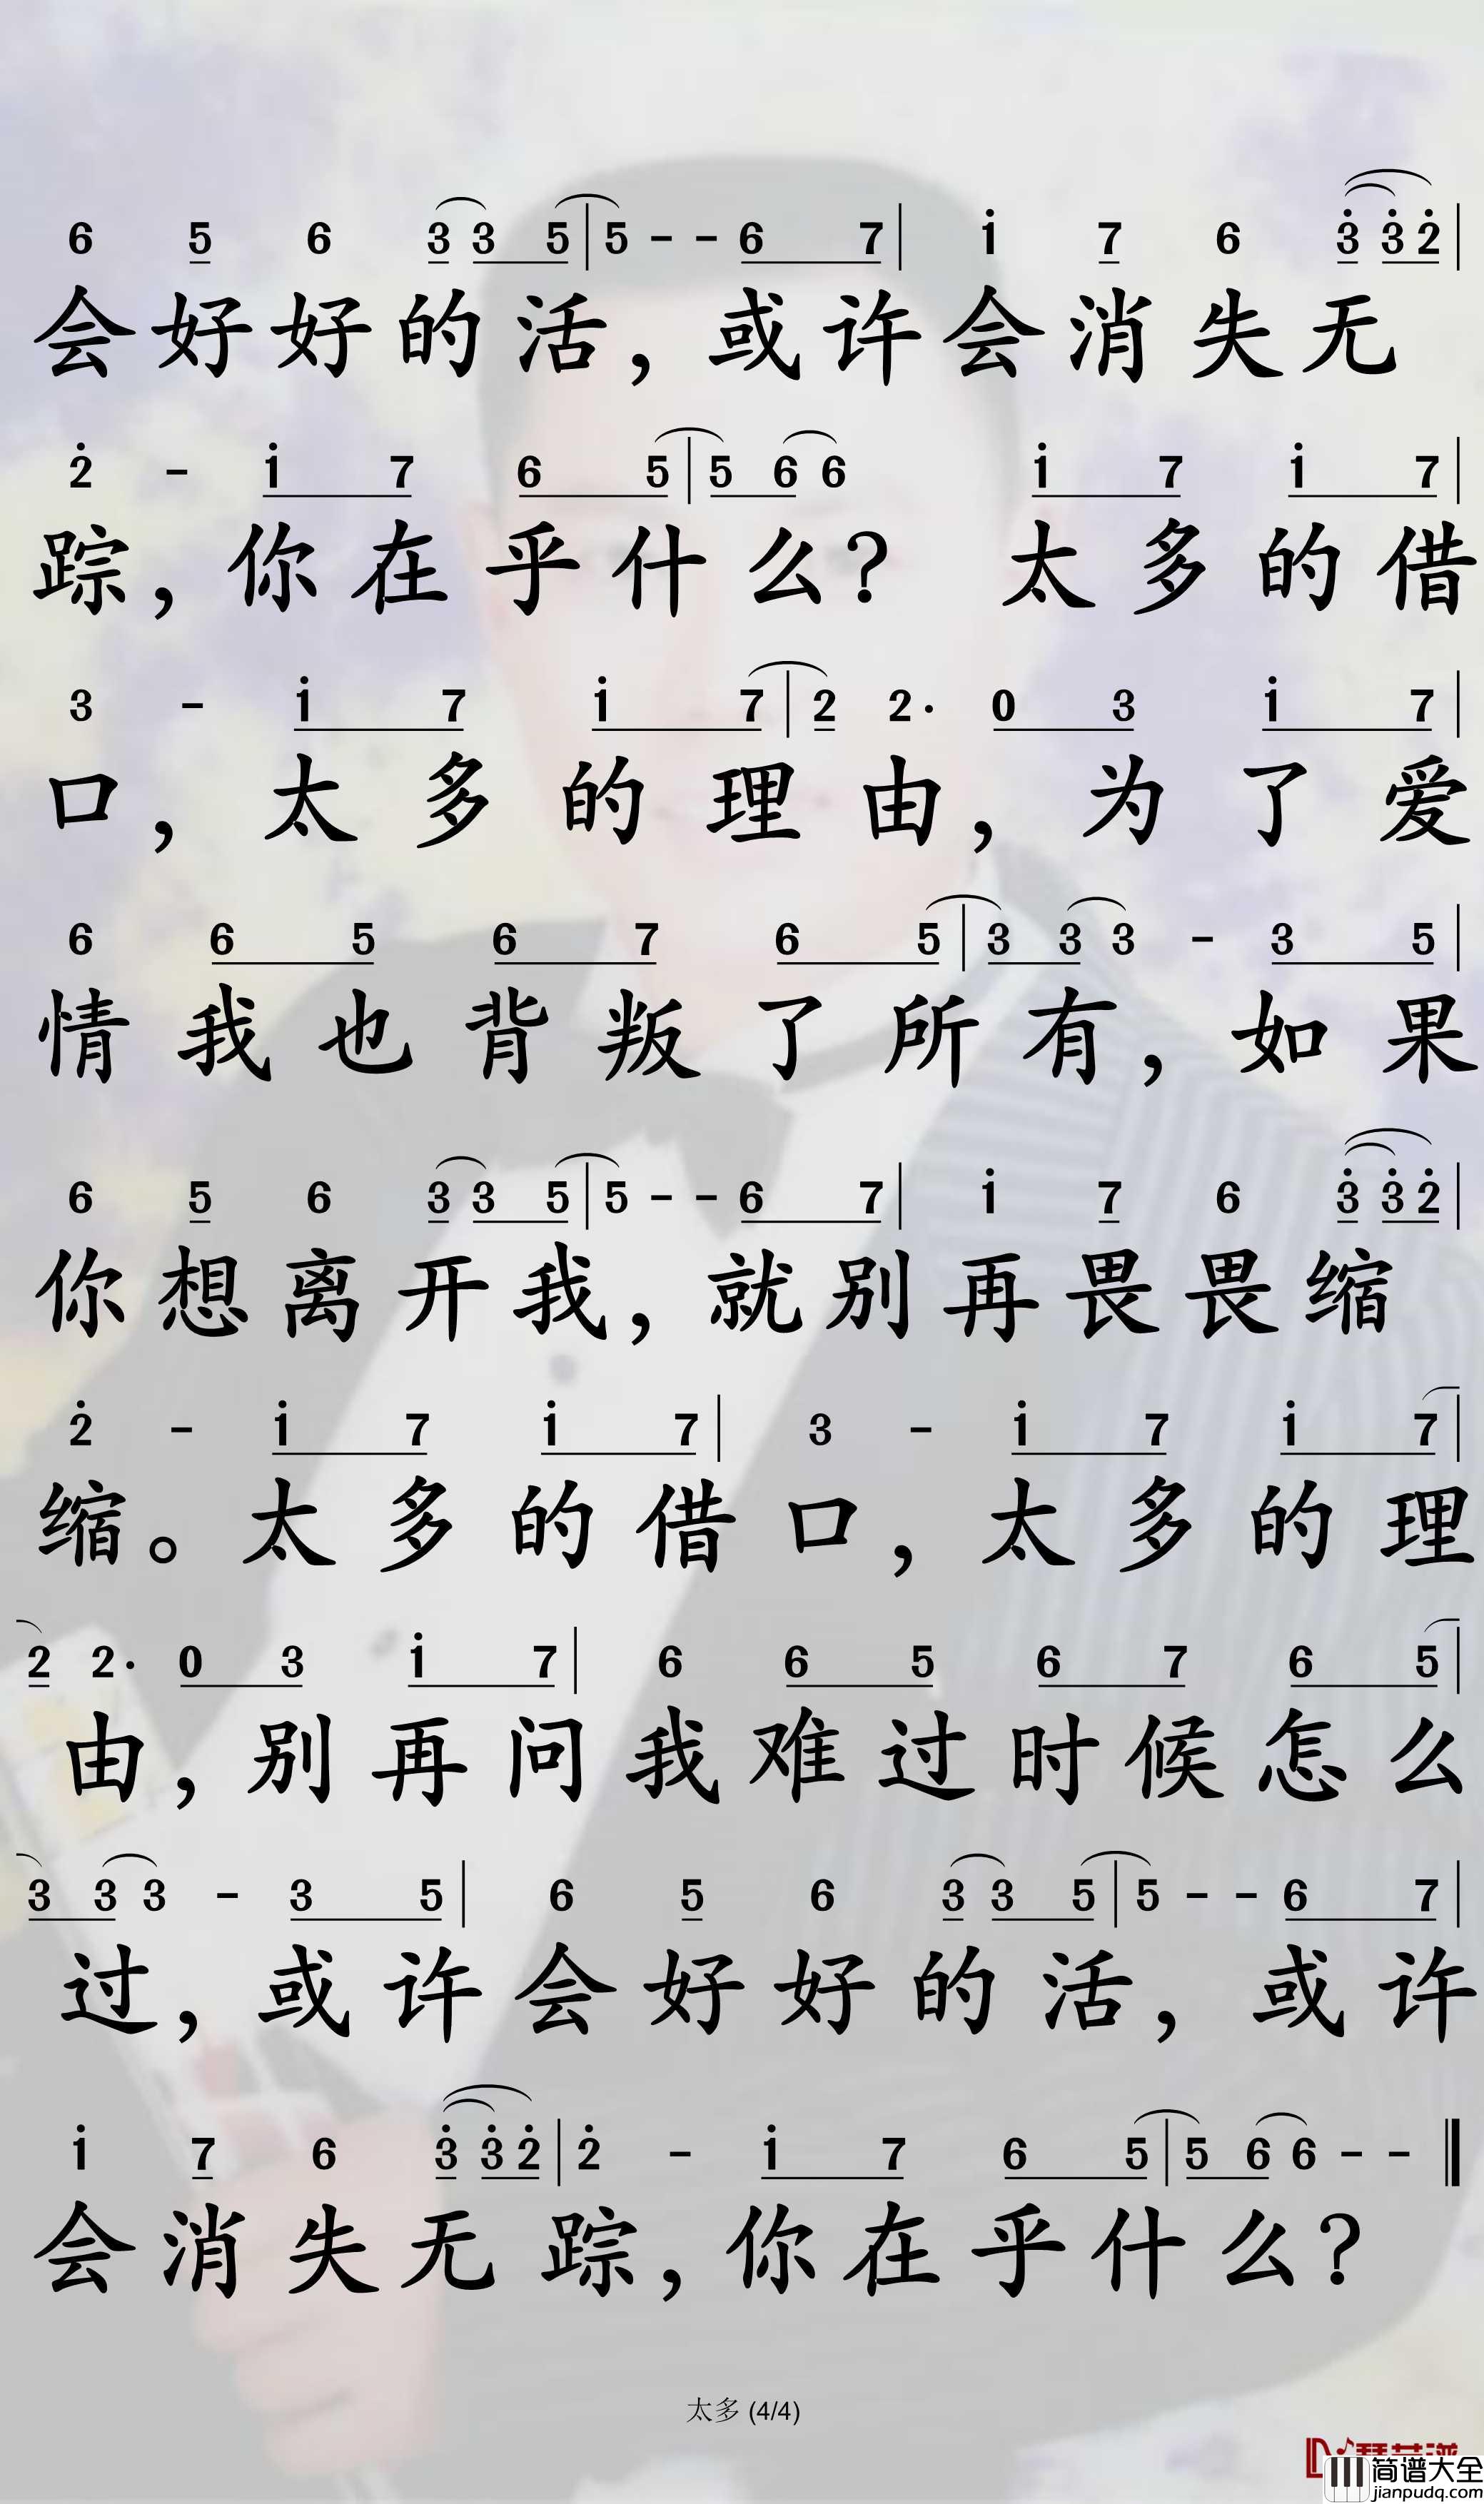 6 5 6 3 3 5 | 5 - - 6 7 | i 7 6 3̇ 3̇ 2̇ |
会好好的活，或许会消失无
2̇ - i 7 6 5 | 5 6 6 i 7 i 7 |
踪，你在乎什么？ 太多的借
3 - i 7 i 7 | 2 2· 0 3 i 7 |
口，太多的理由，为了爱
6 6 5 6 7 6 5 | 3 3 3 - 3 5 |
情我也背叛了所有，如果
6 5 6 3 3 5 | 5 - - 6 7 | i 7 6 3̇ 3̇ 2̇ |
你想离开我，就别再畏畏缩
2̇ - i 7 i 7 | 3 - i 7 i 7 |
缩。太多的借口，太多的理
2 2· 0 3 i 7 | 6 6 5 6 7 6 5 |
由，别再问我难过时候怎么
3 3 3 - 3 5 | 6 5 6 3 3 5 | 5 - - 6 7 |
过，或许会好好的活，或许
i 7 6 3̇ 3̇ 2̇ | 2̇ - i 7 6 5 | 5 6 6 - - ‖
会消失无踪，你在乎什么？
太多 (4/4)
简谱大全
jianpudq.com